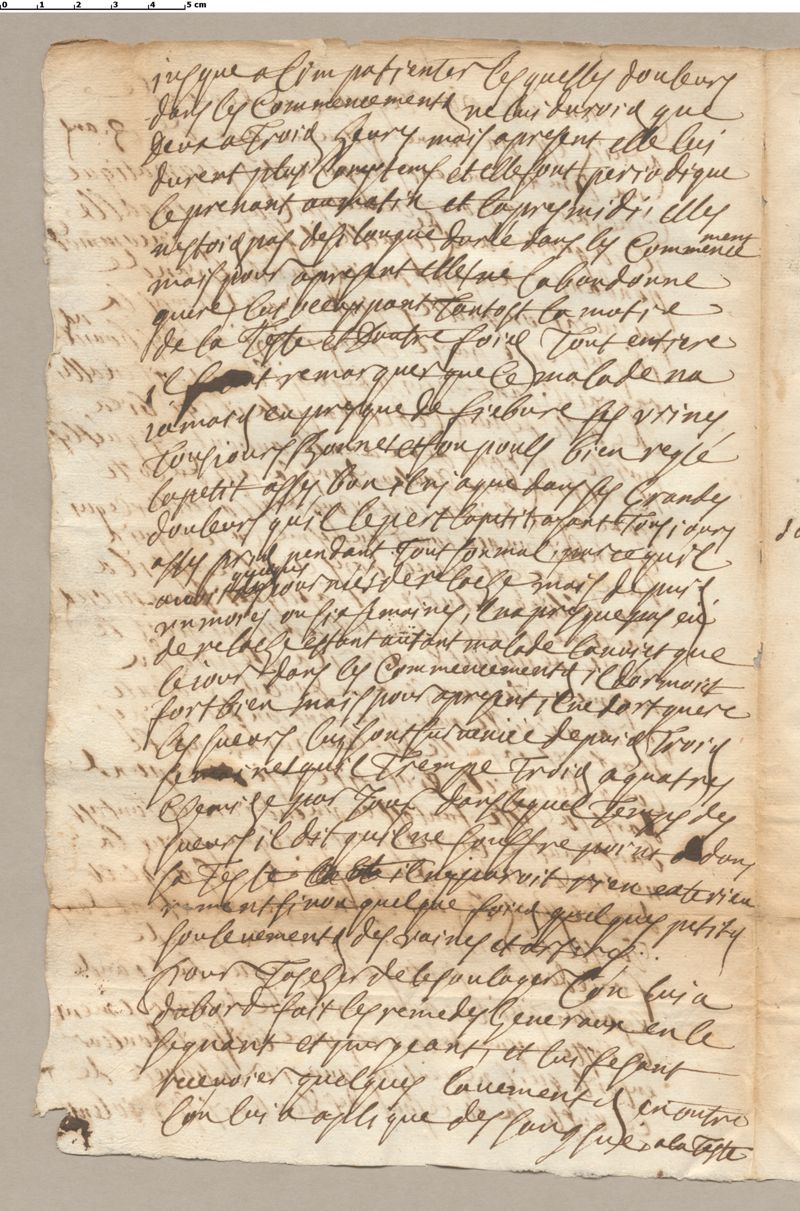 0 1 2 3 4 5 cm
iusque a limpatienter lesquelles douleurs
dans les Commencements ne lui duroid que
deux a Troid heures mais apresent elle lui
durent plus Longtems et elle sont periodique
le prenant au matin et lapresmidi, elles
nestoid pas desi longue durée dans les Commence
ment
mais pour apresent elles ne labandonne
quere lui occuppant Tantost la motie
de la Teste et Dautre foid Tout entiere
il faut remarquer que Ce malade na
iamais eu presque de fiebure ses vrines
Tousiours Bonnes et son pouls bien reglé
lapetit assez bon il ny a que dans ses Grandes
douleurs quil le pert lapetit ayant Tousiours
assez pendant Tout son mal, parce quil
avoit quelques iournées de relache mais depuis
un mois ou six semaines, il na presque pas eu
de relache estant autant malade la nuict que
le iour dans les Commencements il dormoit
fort bien mais pour apresent il ne dort quere
les sueurs lui sont suruenüe depuis Troid
semaines quil Trempe Troid a quatres
Chemise par Jour dans lequel Temps des
sueurs il dit quil ne souffre point dans
sa Teste il ny paroit rien exterieu
rement sinon quelque foid quelques petits
souleuements des vaines et arteres.
Pour Tascher de le soulager Lon lui a
dabord fait les remedes Generaux en le
segnant et purgeant, et lui fesant
receuoier quelques lauements en outre
Lon lui a aplique des sangsues a la Teste